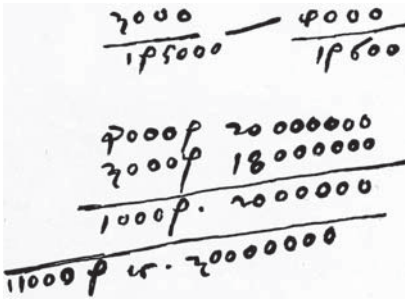 3000 — 4000
1ρ5000 1ρ600
4000ρ 20 000000
3000ρ 18 000000
1000ρ. 2000000
11000ρ 30000000